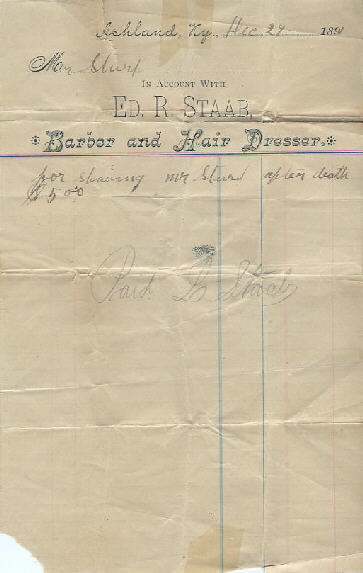 Ashland, Ky., Dec. 29 189
Mr Sturt
IN ACCOUNT WITH
ED. R. STAAB,
Barbor and Hair Dresser.
for shaving mr Sturt after death
$5.00
Paid